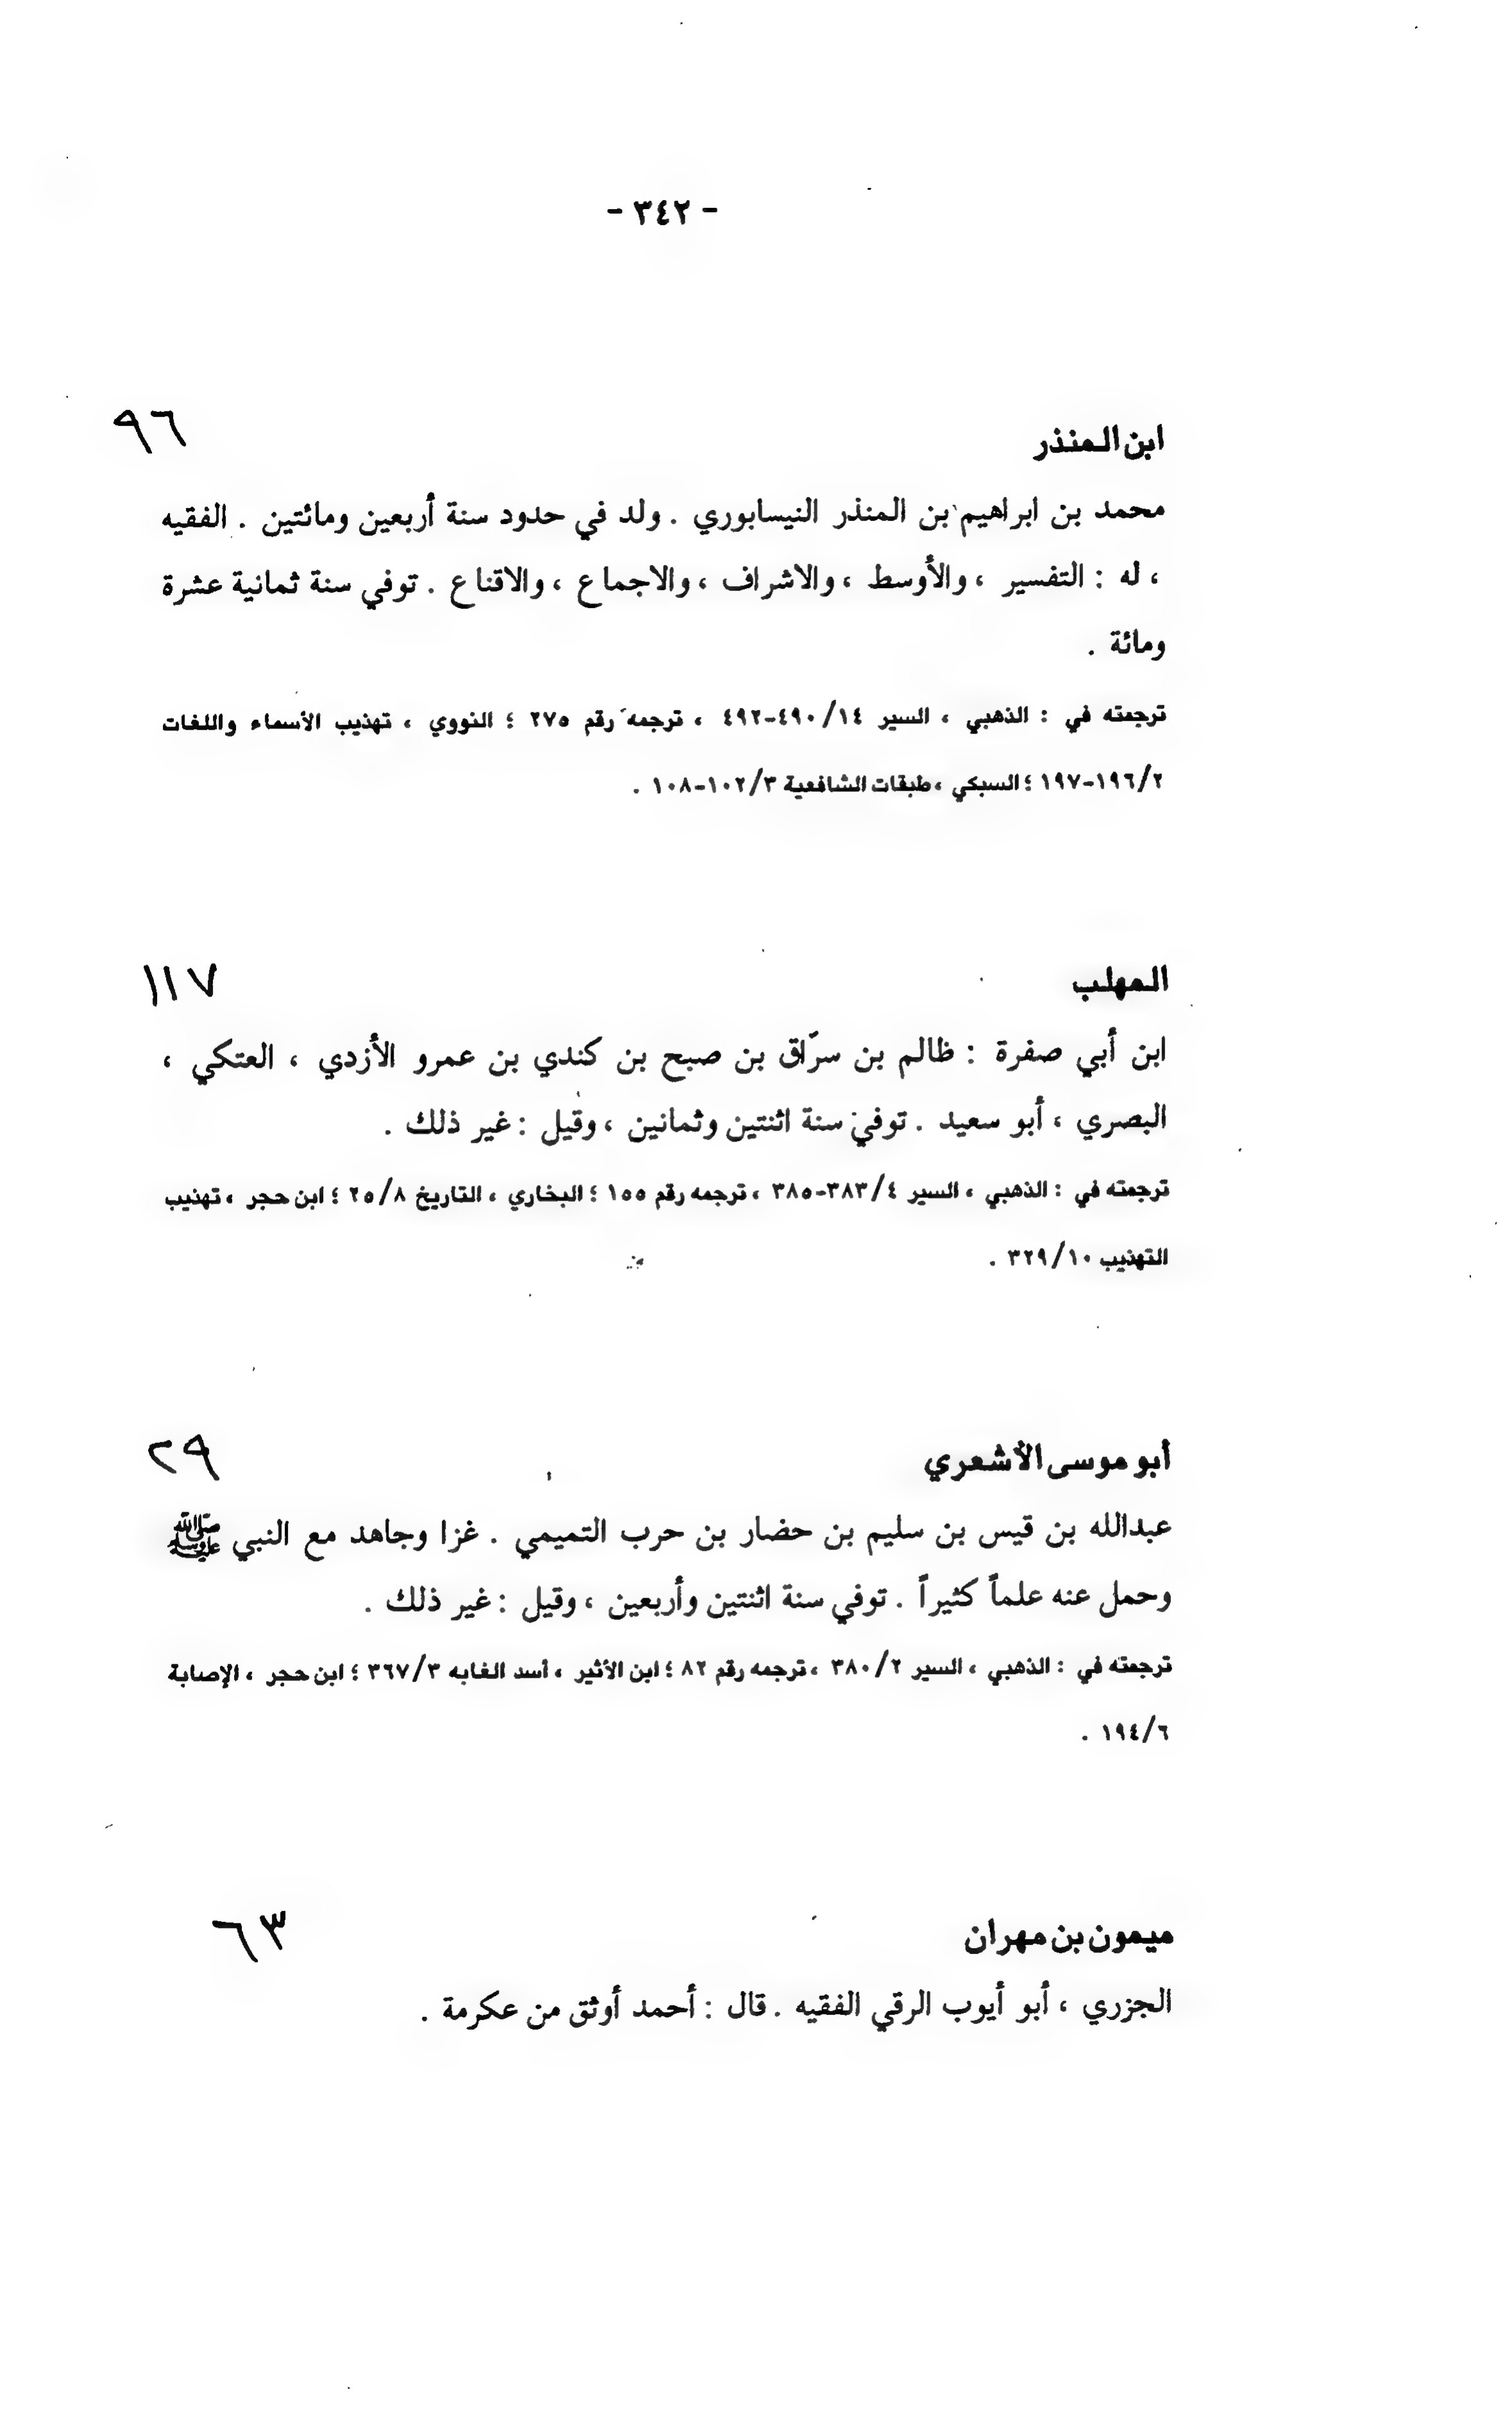 - ٣٤٢ -
ابن المنذر ٩٦
محمد بن ابراهيم بن المنذر النيسابوري . ولد في حدود سنة أربعين ومائتين . الفقيه
، له : التفسير ، والأوسط ، والاشراف ، والاجماع ، والاقناع . توفي سنة ثمانية عشرة
ومائة .
ترجمته في : الذهبي ، السير ١٤/ ٤٩٠-٤٩٢ ، ترجمه رقم ٢٧٥ ؛ النووي ، تهذيب الأسماء واللغات
٢/ ١٩٦-١٩٧ ؛ السبكي ، طبقات الشافعية ٣/ ١٠٢-١٠٨ .
المهلب ١١٧
ابن أبي صفرة : ظالم بن سرّاق بن صبح بن كندي بن عمرو الأزدي ، العتكي ،
البصري ، أبو سعيد . توفي سنة اثنتين وثمانين ، وقيل : غير ذلك .
ترجمته في : الذهبي ، السير ٤/ ٣٨٣-٣٨٥ ، ترجمه رقم ١٥٥ ؛ البخاري ، التاريخ ٨/ ٢٥ ؛ ابن حجر ، تهذيب
التهذيب ١٠/ ٣٢٩ .
أبو موسى الأشعري ٢٩
عبدالله بن قيس بن سليم بن حضار بن حرب التميمي . غزا وجاهد مع النبي ﷺ
وحمل عنه علماً كثيراً . توفي سنة اثنتين وأربعين ، وقيل : غير ذلك .
ترجمته في : الذهبي ، السير ٢/ ٣٨٠ ، ترجمه رقم ٨٢ ؛ ابن الأثير ، أسد الغابه ٣/ ٣٦٧ ؛ ابن حجر ، الإصابة
٦/ ١٩٤ .
ميمون بن مهران ٦٣
الجزري ، أبو أيوب الرقي الفقيه . قال : أحمد أوثق من عكرمة .